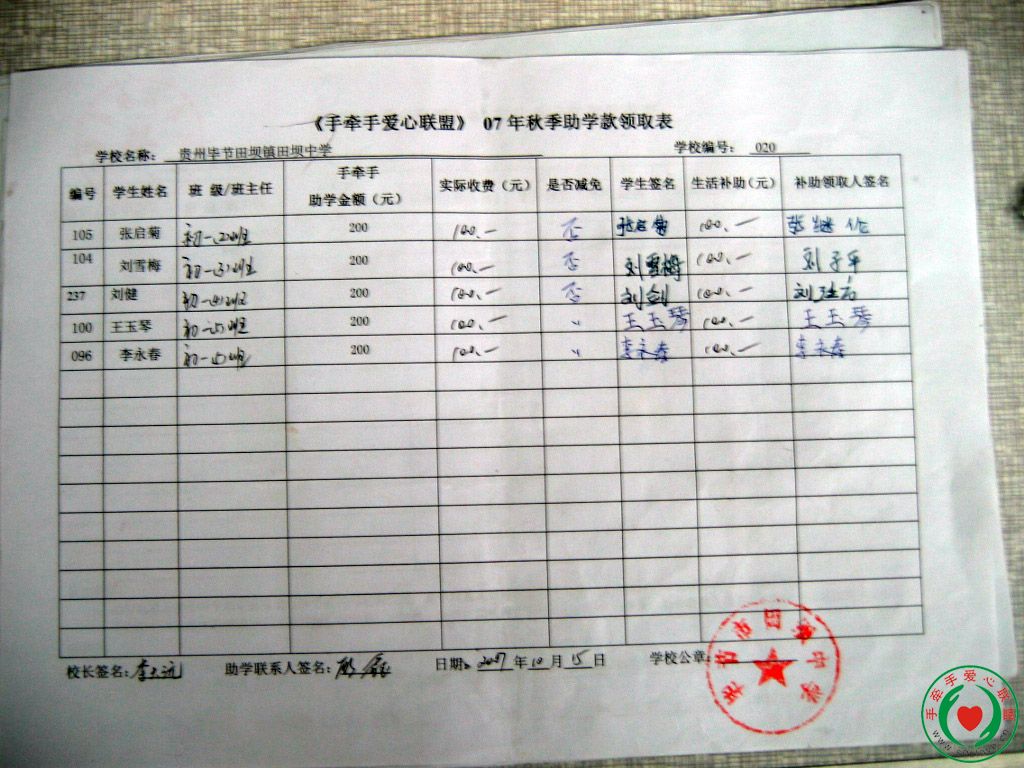 《手牵手爱心联盟》 07年秋季助学款领取表
学校名称： 贵州毕节田坝镇田坝中学 学校编号： 020
编号 学生姓名 班 级/班主任 手牵手 助学金额（元） 实际收费（元） 是否减免 学生签名 生活补助（元） 补助领取人签名
105 张启菊 初一(2)班 200 100.— 否 张启菊 100.— 张继伦
104 刘雪梅 初一(3)班 200 100.— 否 刘雪梅 100.— 刘子平
237 刘健 初一(4)班 200 100.— 否 刘剑 100.—
100 王玉琴 初一(5)班 200 100.— 〃 王玉琴 100.— 王玉琴
096 李永春 初一(5)班 200 100.— 〃 李永春 100.— 李永春
校长签名： 助学联系人签名： 日期: 2007 年 10 月 15 日 学校公章：
手牵手爱心联盟